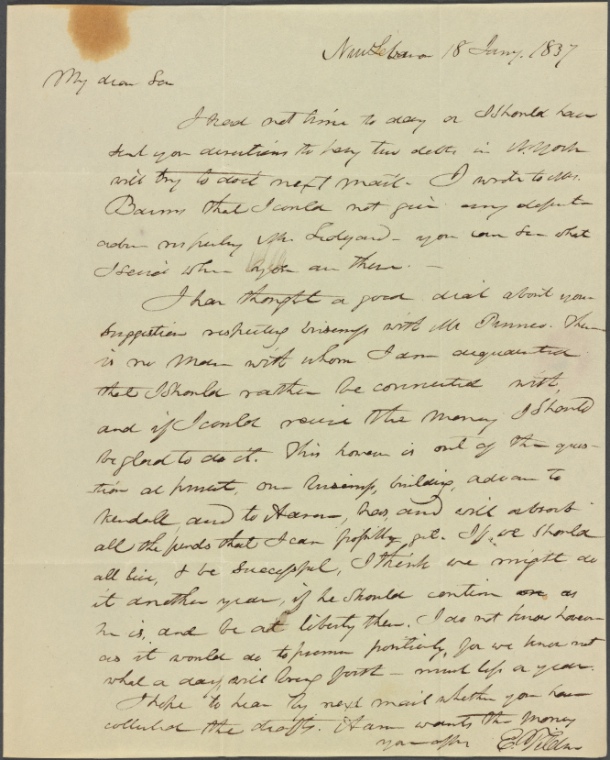 New Lebanon 18 Jany. 1837
My dear Son
I had not time to day or I should have
sent you directions to pay two debts in N. York
will try to do it next mail - I write to Mr.
Barns that I could not give any definite
advice respecting Mr. Ledyard - you can see what
I said when you are there. -
I have thought a good deal about your
suggestion respecting business with Mr. There
is no man with whom I am acquainted
that I should rather be connected with,
and if I could raise the money I should
be glad to do it. This however is out of the ques-
tion at present, our business, building, advan to
Kendall, and to has, and will absorb
all the funds that I can get. If we should
all live, & be successful, I think we might do
it another year, if he should as
he is, and be at liberty then. I do not know however
as it would do to positively, for we know not
what a day will bring forth - much less a year.
I hope to hear by next mail whether you have
collected the drafts. wants the money
your affe E. Tilden